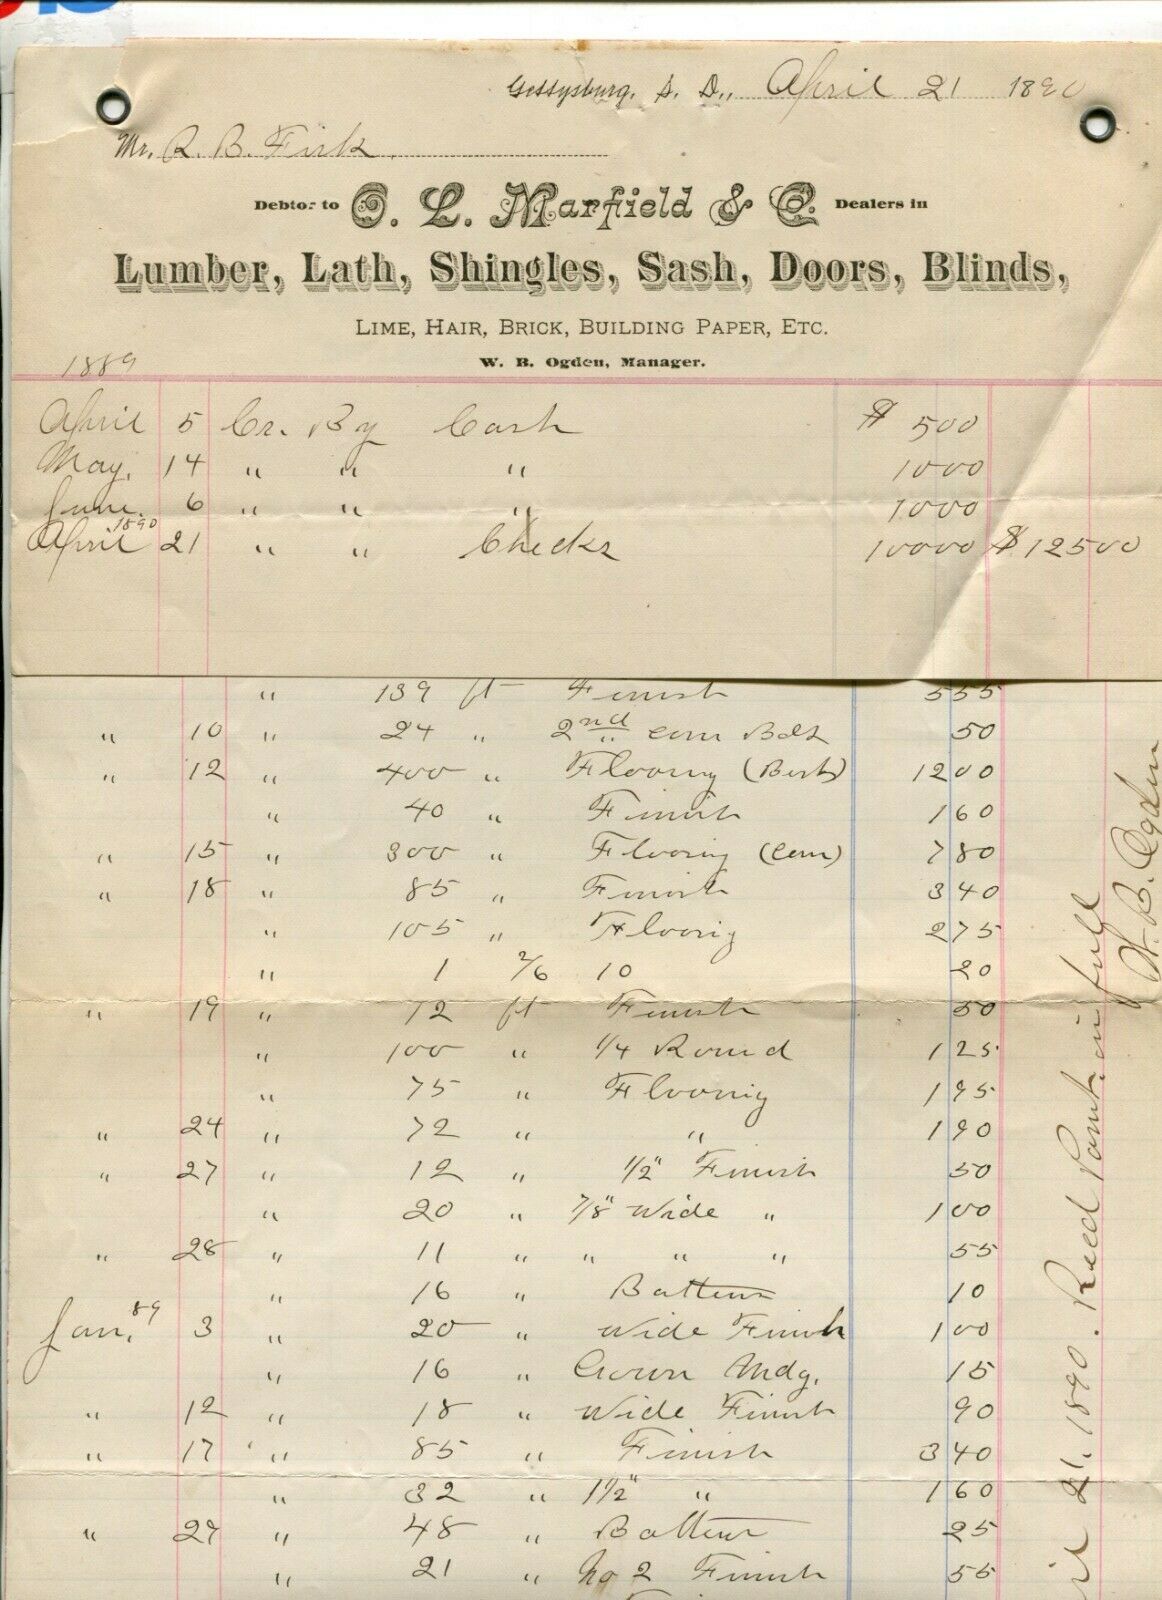 Gettysburg, S. D., April 21 1890
Mr. R. B. Fisk
Debtor to O. L. Marfield & Co. Dealers in
Lumber, Lath, Shingles, Sash, Doors, Blinds,
LIME, HAIR, BRICK, BUILDING PAPER, ETC.
W. B. Ogden, Manager.
1889
April 5 Cr. By Cash $ 500
May. 14 " " " 1000
June. 6 " " " 1000
1890
April 21 " " Checks 10000 $12500
" 139 ft Finish 555
" 10 " 24 " 2nd com Bds 50
" 12 " 400 " Flooring (Best) 1200
" 40 " Finish 160
" 15 " 300 " Flooring (Com) 780
" 18 " 85 " Finish 340
" 105 " Flooring 275
" 1 2/6 10 20
" 19 " 12 ft Finish 50
" 100 " 1/4 Round 125
" 75 " Flooring 195
" 24 " 72 " " 190
" 27 " 12 " 1/2" Finish 50
" 20 " 7/8" Wide " 100
" 28 " 11 " " " " 55
" 16 " Battens 10
Jan. 89 3 " 20 " Wide Finish 100
" 16 " Crown Mdg. 15
" 12 " 18 " Wide Finish 90
" 17 " 85 " Finish 340
" 32 " 1 1/2" " 160
" 29 " 48 " Battens 25
" 21 " No 2 Finish 55
21. 1890. Recd Paymt. in full
W. B. Ogden